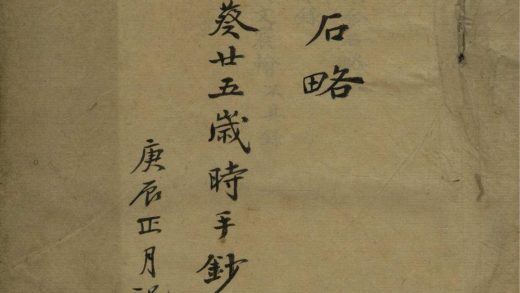 石略
葵廿五歲時手鈔
庚辰正月